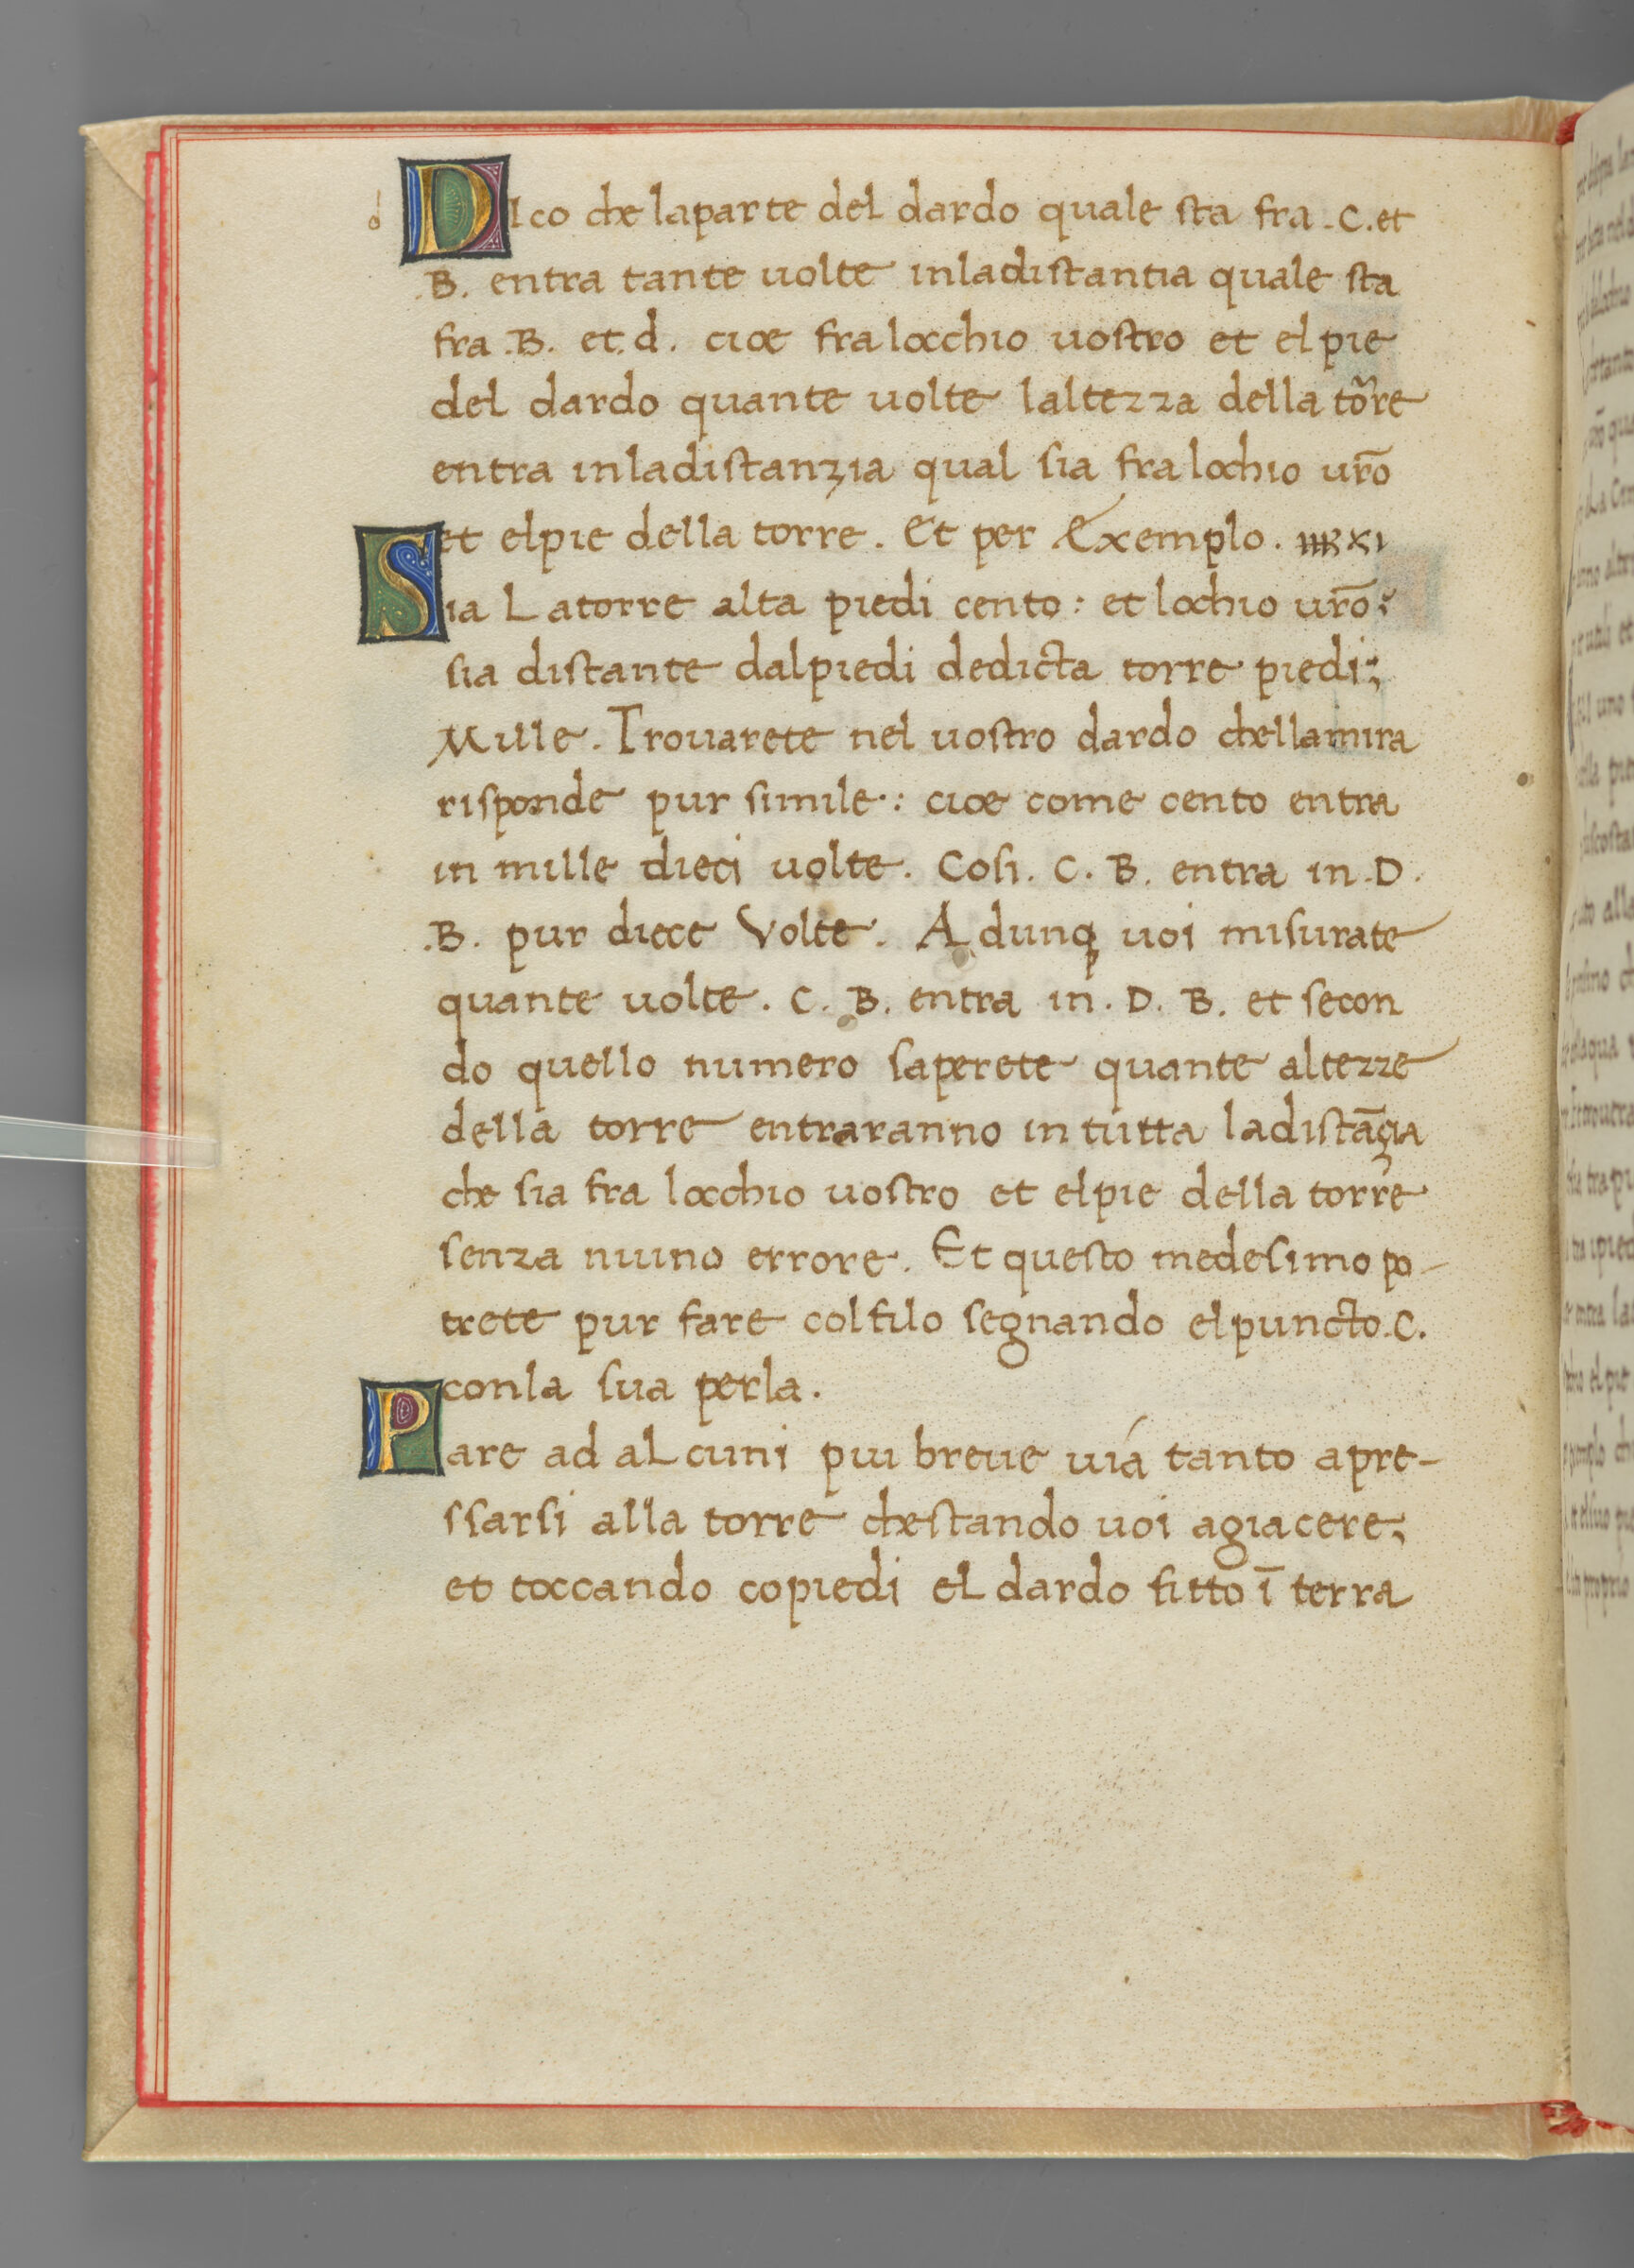 d DIco che laparte del dardo quale sta fra .C. et
.B. entra tante uolte inladistantia quale sta
fra .B. et .d. cioe fra locchio uostro et el pie
del dardo quante uolte laltezza della torre
entra inladistanzia qual sia fra lochio ur̄o
et elpie della torre. Et per Exemplo.
Sia Latorre alta piedi cento: et lochio ur̄o;
sia distante dalpiedi dedicta torre piedi;
Mille. Trouarete nel uostro dardo chellamira
risponde pur simile: cioe come cento entra
in mille dieci uolte. Cosi. C. B. entra in .D.
.B. pur diece Volte. Adunq̧ uoi misurate
quante uolte. C. B. entra in. D. B. et secon
do quello numero saperete quante altezze
della torre entraranno in tutta ladistāzia
che sia fra locchio uostro et elpie della torre
senza niuno errore. Et questo medesimo po-
trete pur fare colfilo segnando elpuncto .C.
conla sua perla.
Pare ad alcuni piu breue uiá tanto apre-
ssarsi alla torre chestando uoi agiacere;
et toccando copiedi el dardo fitto ī terra